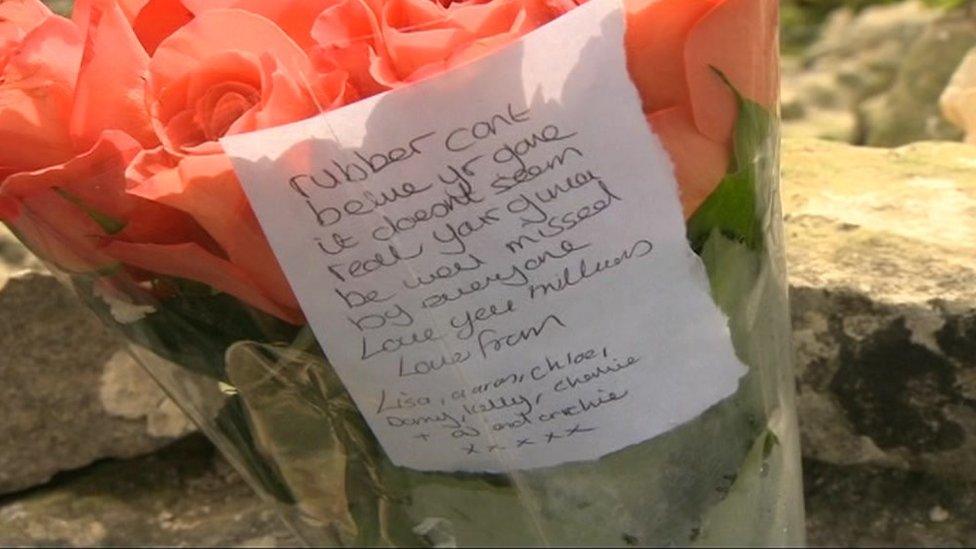 rubber cant
belive yr gone
it doesnt seem
real your gunna
be well missed
by everyone
Love you millions
Love from
Lisa, aaron, Chloe,
Danny, kelly, charlie
+ and archie
x x x x x